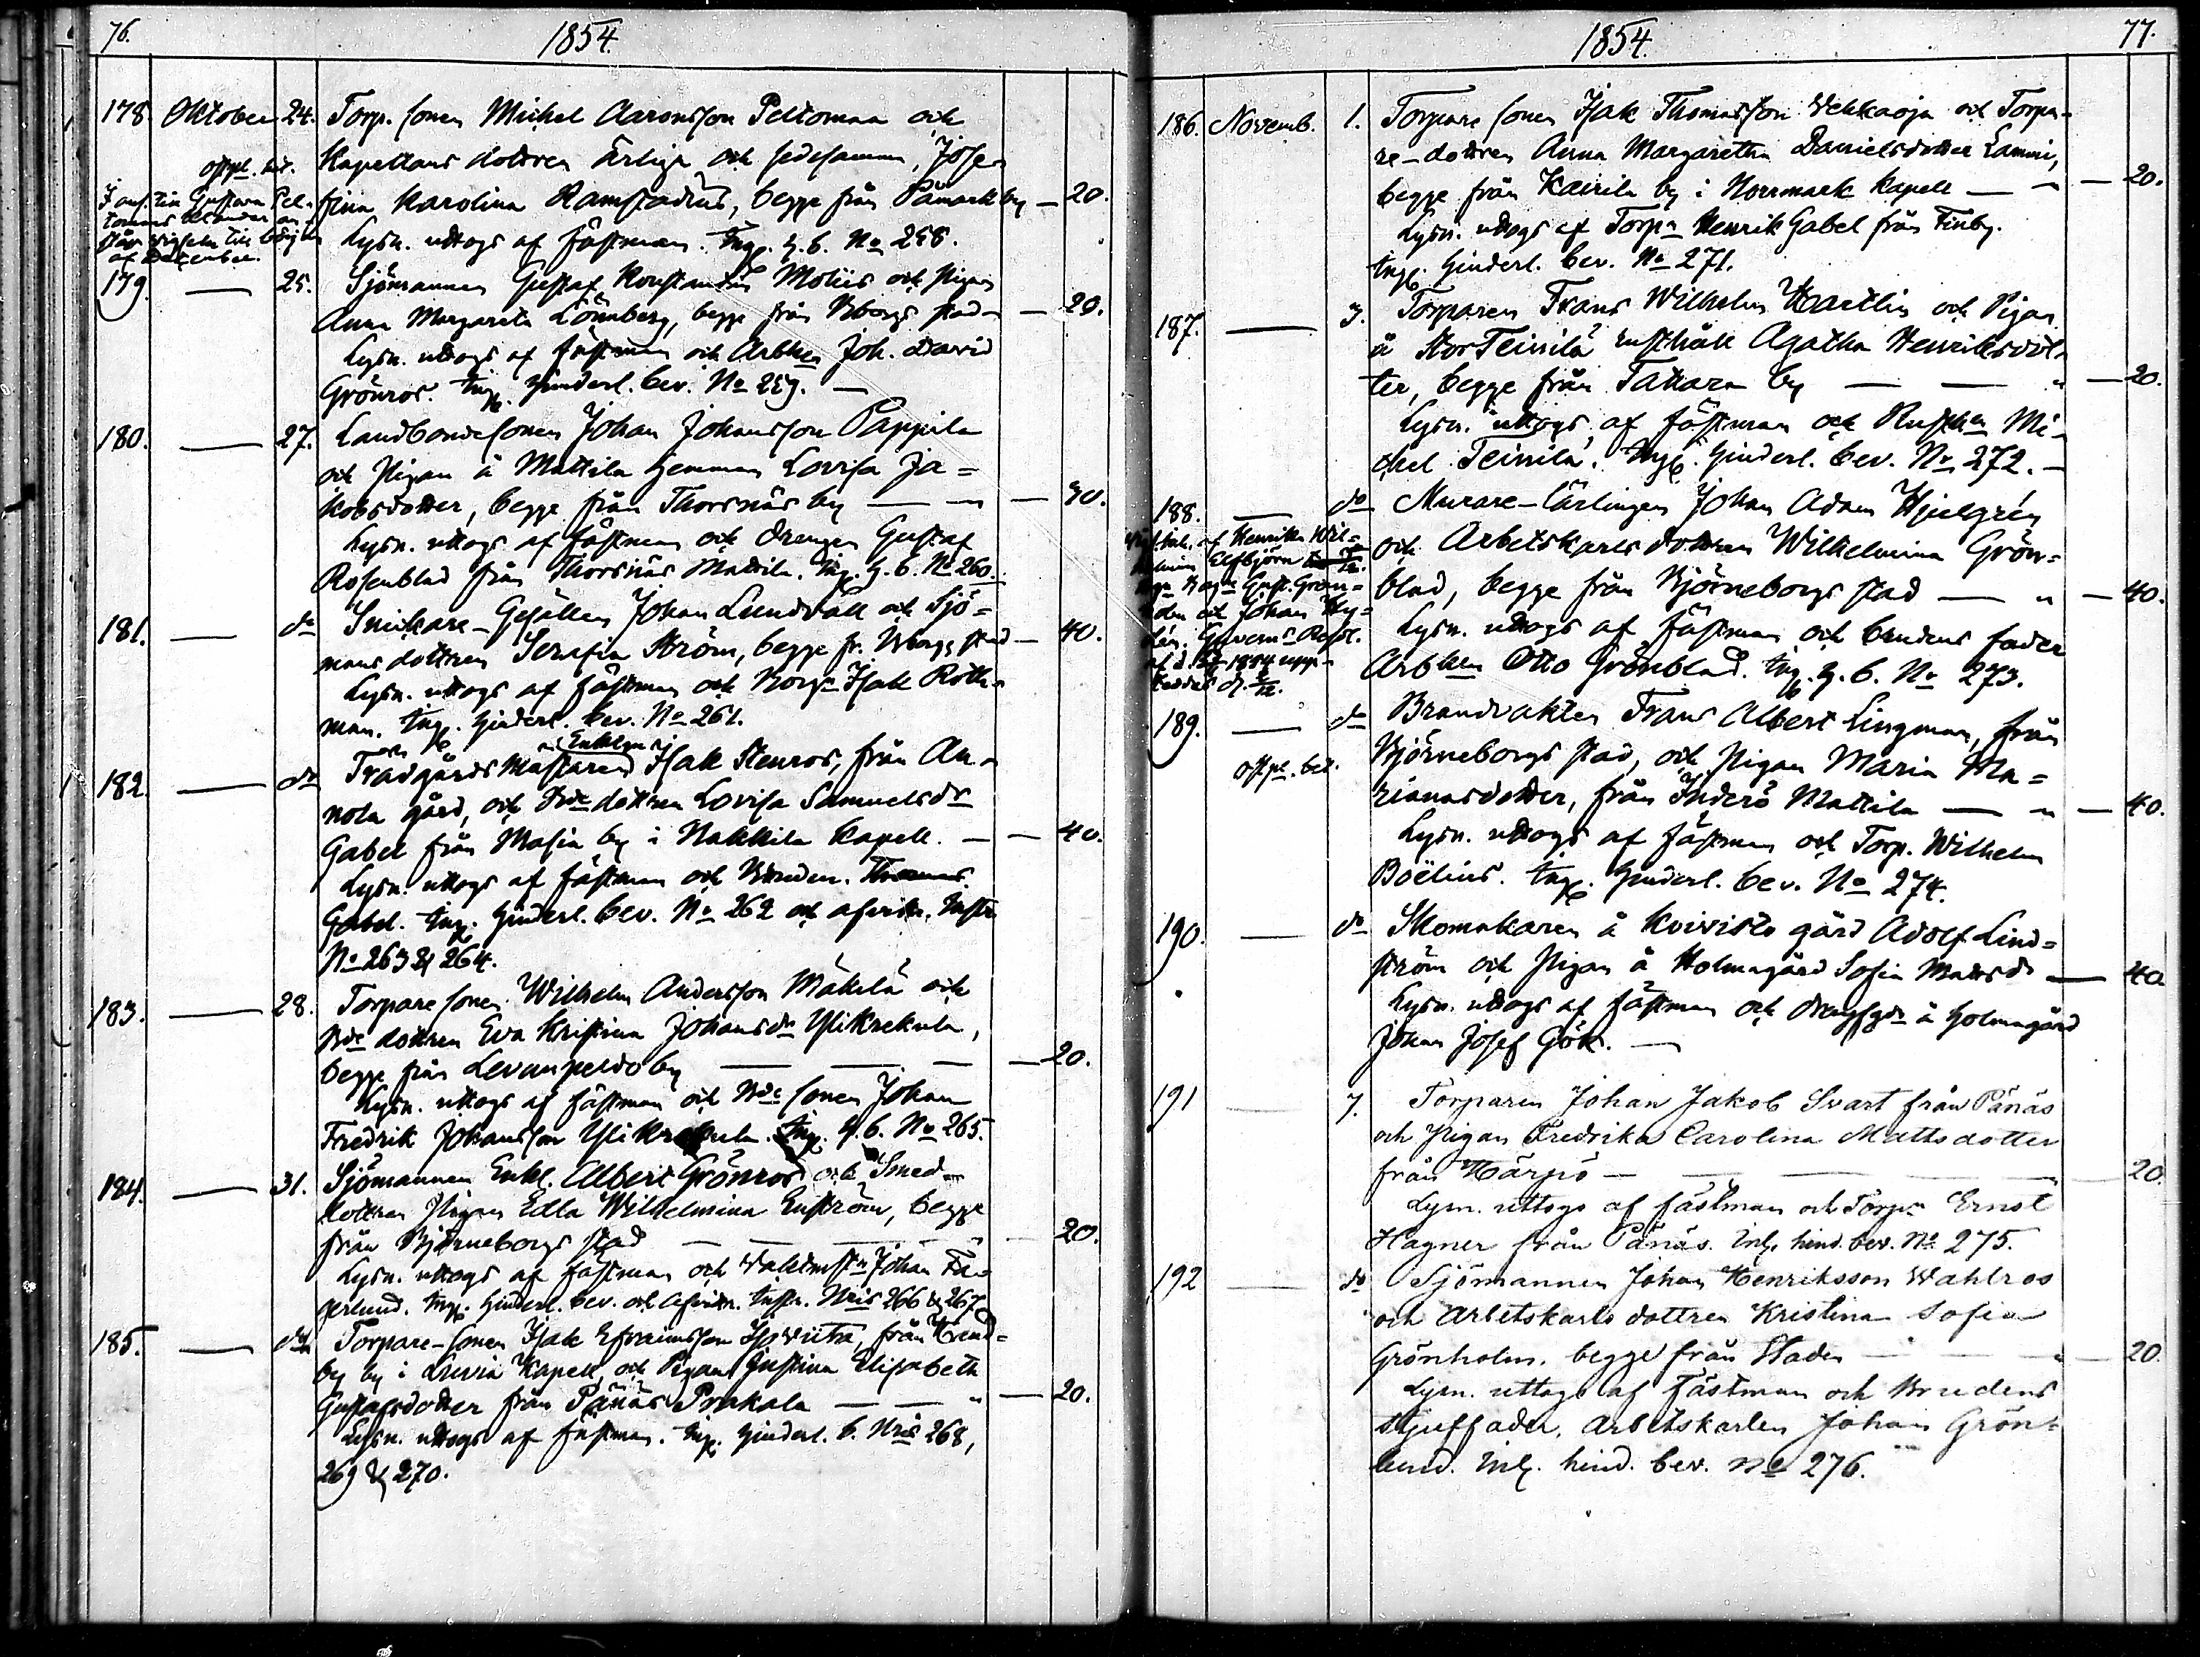 76.
1854.
178. Oktober 24. Torp. sonen Michel Aaronsson Peltomaa och
Kapellans dottren ärliga och sedesamma, Jose-
fina Karolina Ramstadius, begge från Påmark by — 20.
Lysn. uttogs af fästman. Ing. h. b. No 258.
179. — 25. Sjömannen Gustaf Konstantin Molliis och Pigan
Anna Margareta Lönnberg, begge från Bborgs stad — 20.
Lysn. uttogs af fästman och Arbkn Joh. David
Grönroos. Ing. hinderl. bev. No 259. —
180. — 27. Landbondesonen Johan Johansson Pappila
och Pigan å Mattila hemman Lovisa Ja=
kobsdotter, begge från Thorsnäs by — " — 30.
Lysn. uttogs af fästman och Drengen Gustaf
Rosenblad från Thorsnäs Mattila. Ing. h. b. No 260.
181. — do Snickare-Gesällen Johan Lundvall och Sjö=
mans dottren Serafia Ström, begge fr. Bborgs stad — 40.
Lysn. uttogs af fästman och Borgn Isak Roth-
man. Ing. hinderl. bev. No 261.
Enkln
182. — do Trädgårds Mästaren Isak Stenros, från An-
nola gård, och Bde dottren Lovisa Samuelsdr
Gabel från Masia by i Nakkila Kapell. — — 40.
Lysn. uttogs af fästman och Bonden Thomas
Gabel. Ing. hinderl. bev. No 262 och afvittr. Instr.
No 263 & 264.
183. — 28. Torparesonen Wilhelm Andersson Mäkelä och
Bde dottren Eva Kristina Johansdr Ylikrekula,
begge från Levanpelto by — — — 20.
Lysn. uttogs af fästman och Bde sonen Johan
Fredrik Johansson Ylikrekula. Ing. h. b. No 265.
184. — 31. Sjömannen Enkl. Albert Grönroos och Smed-
dottren Pigan Edla Wilhelmina Enström, begge
från Björneborgs stad — — — 20.
Lysn. uttogs af fästman och Vaktmstn Johan Fa-
gerlund. Ing. hinderl. bev. och Afvittr. Instr. Nris 266 & 267
185. — do Torpare-sonen Isak Efraimsson, från
by i Luvia Kapell, och Pigan Justina Elisabeth
Gustafsdotter från Pänäs Prakala — — " — 20.
Lysn. uttogs af fästman. Ing. hinderl. b. Nris 268,
269 & 270.
77.
1854.
186. Novemb. 1. Torpare sonen Isak Thomasson Vekkaoja och Torpa-
re-dottren Anna Margaretha Danielsdotter Lammi,
begge från Kairila by i Norrmark kapell — " — 20.
Lysn. uttogs af Torpn Henrik Gabel från Finby.
Ing. hinderl. bev. No 271.
187. — 3. Torparen Frans Wilhelm Martlin och Pigan
å Stor Teinilä rusthåll Agatha Henriksdot-
ter, begge från Tattara by — — " — 20.
Lysn. uttogs af fästman och Rusthn Mi-
chel Teinilä. Ing. hinderl. bev. No 272. —
188. — do Murare-lärlingen Johan Adam Hjelgrén
och Arbetskarls dottren Wilhelmina Grön=
blad, begge från Björneborgs stad — " — 40.
Lysn. uttogs af fästman och brudens fader
Arbkn Otto Grönblad. Ing. h. b. No 273.
189. — do Brandvakten Frans Albert Lingman, från
Björneborgs stad, och Pigan Maria Ma=
rianasdotter, från Inderö Mattila — " — 40.
Lysn. uttogs af fästman och Torp. Wilhelm
Boëlius. Ing. hinderl. bev. No 274.
190. — do Skomakaren å Koivisto gård Adolf Lind=
ström och Pigan å Holmagård Sofia Mattsdr — 40
Lysn. uttogs af fästman och å Holmagård
Johan Josef Gök. —
191 — 7. Torparen Johan Jakob Svart från Pänäs
och pigan Fredrika Carolina Mattsdotter
från Härpö — — — 20.
Lysn. uttogs af fästman och Torpn Ernst
Hagner från Pänäs. Inl. hind. bev. No 275.
192 — do Sjömannen Johan Henriksson Wahlros
och Arbetskarls dottren Kristina Sofia
Grönholm, begge från Staden — — " — 20.
Lysn. uttogs af Fästman och Brudens
stjuffader, Arbetskarlen Johan Grön-
lund. Inl. hind. bev. No 276.